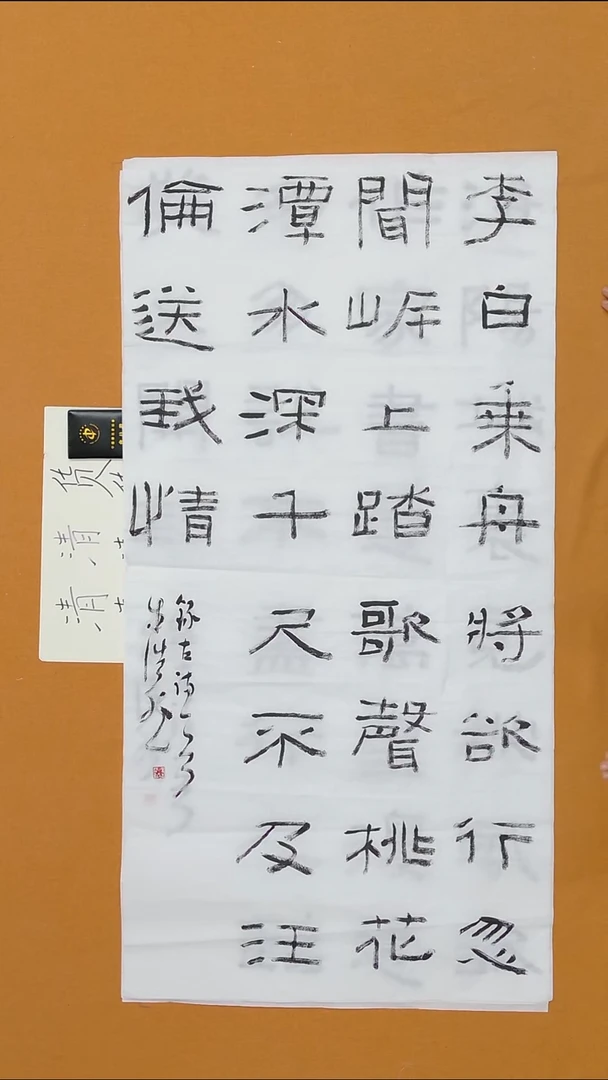 李白乘舟將欲行忽
聞岸上踏歌聲桃花
潭水深千尺不及汪
倫送我情
錄古詩一首
货
清
清